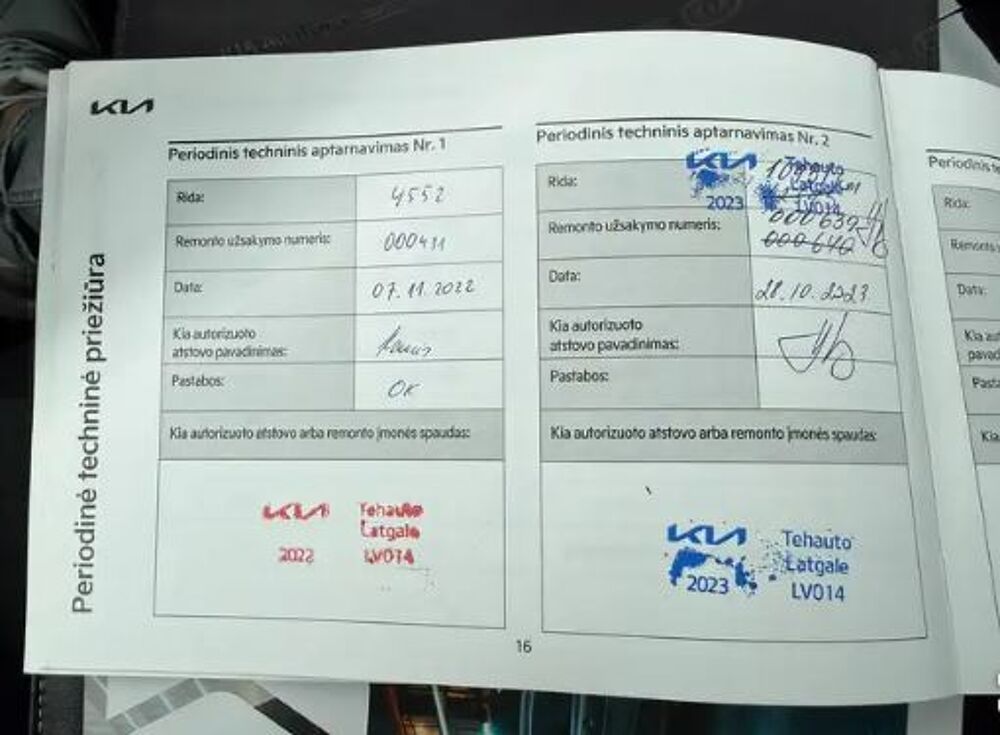 KIA
Periodinė techninė priežiūra
Periodinis techninis aptarnavimas Nr. 1
Rida: 4552
Remonto užsakymo numeris: 000411
Data: 07.11.2022
Kia autorizuoto
atstovo pavadinimas:
Pastabos: OK
Kia autorizuoto atstovo arba remonto įmonės spaudas:
KIA Tehauto
Latgale
2022 LV014
Periodinis techninis aptarnavimas Nr. 2
KIA Tehauto
Latgale
2023 LV014
Rida:
Remonto užsakymo numeris: 000639
000640
Data: 28.10.2023
Kia autorizuoto
atstovo pavadinimas:
Pastabos:
Kia autorizuoto atstovo arba remonto įmonės spaudas:
KIA Tehauto
Latgale
2023 LV014
16
Periodinis
Rida:
Remonto
Data:
Kia
Kia